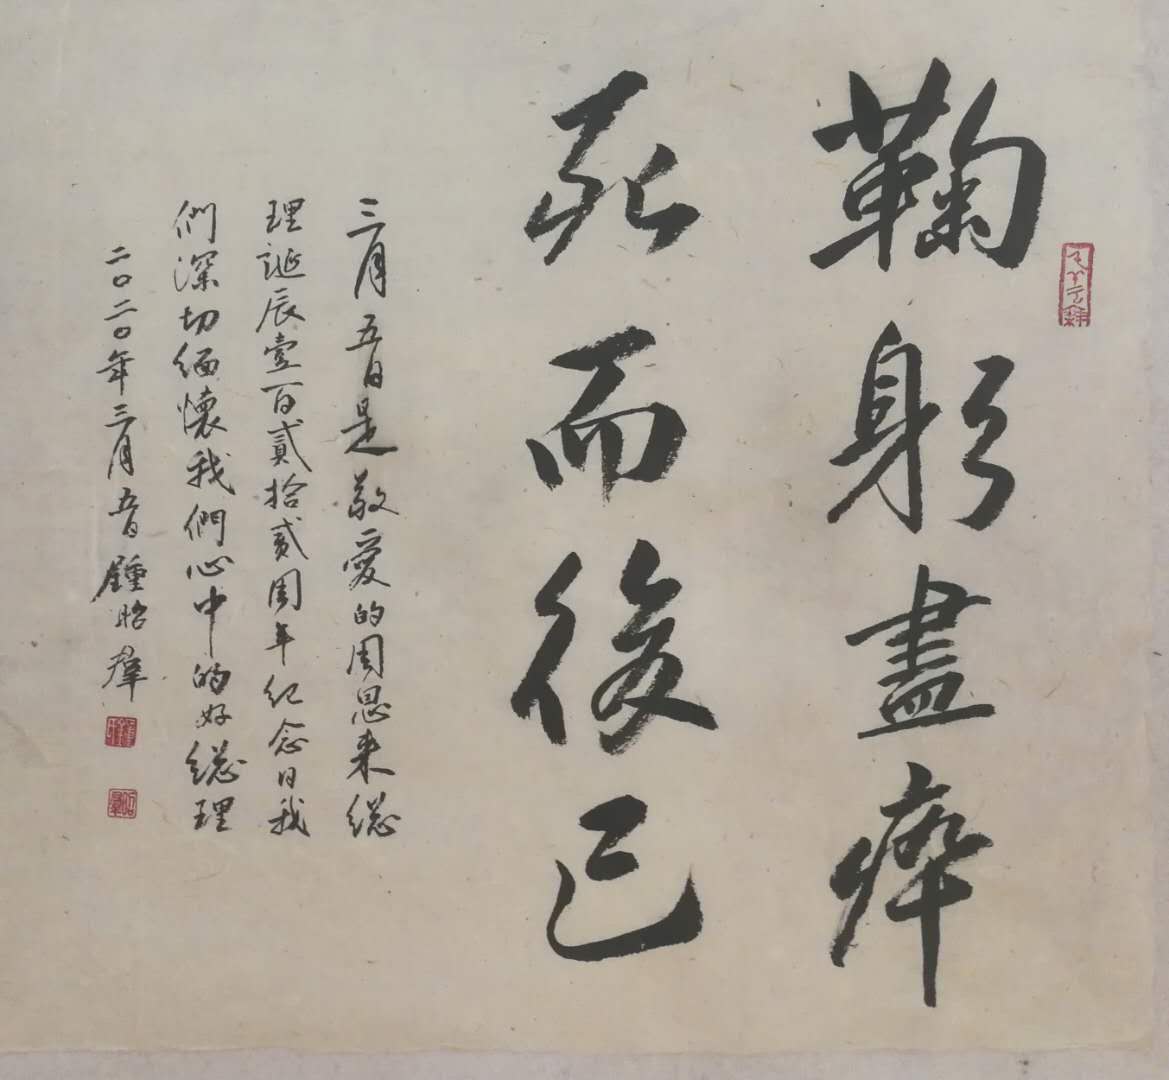 鞠躬盡瘁
死而後已
三月五日是敬愛的周恩来總
理誕辰壹百貳拾貳周年紀念日我
們深切緬懷我們心中的好總理
二〇二〇年三月五日鍾昭群